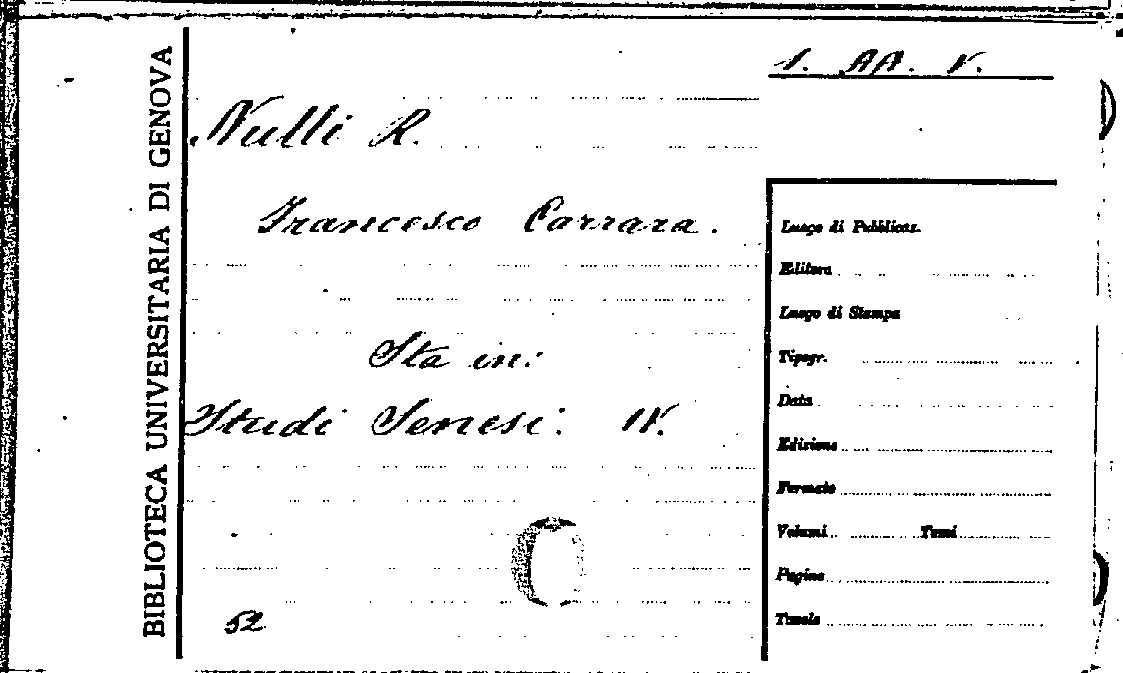 BIBLIOTECA UNIVERSITARIA DI GENOVA
1. AA. V.
Nulli R.
Francesco Carrara.
Sta in:
Studi Senesi: IV.
52
Luogo di Pubblicaz.
Editore
Luogo di Stampa
Tipogr.
Data
Edizione
Formato
Volumi Tomi
Pagine
Tavole